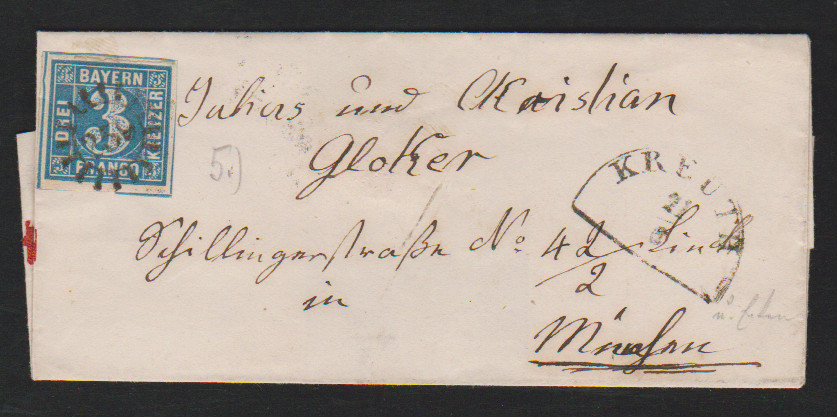 BAYERN
DREI
3
KREUZER
FRANCO
Julius und Christian
Gloker
5)
KREUTH
Schillingerstraße No. 42 links
2
in
München